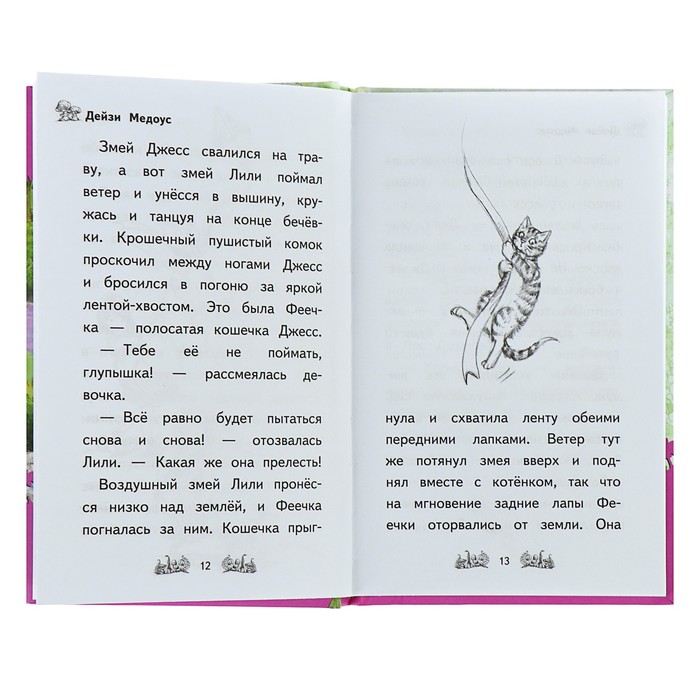 Дейзи Медоус
Змей Джесс свалился на тра-
ву, а вот змей Лили поймал
ветер и унёсся в вышину, кру-
жась и танцуя на конце бечёв-
ки. Крошечный пушистый комок
проскочил между ногами Джесс
и бросился в погоню за яркой
лентой-хвостом. Это была Фееч-
ка — полосатая кошечка Джесс.
— Тебе её не поймать,
глупышка! — рассмеялась де-
вочка.
— Всё равно будет пытаться
снова и снова! — отозвалась
Лили. — Какая же она прелесть!
Воздушный змей Лили пронёс-
ся низко над землёй, и Феечка
погналась за ним. Кошечка прыг-
12
нула и схватила ленту обеими
передними лапками. Ветер тут
же потянул змея вверх и под-
нял вместе с котёнком, так что
на мгновение задние лапы Фе-
ечки оторвались от земли. Она
13